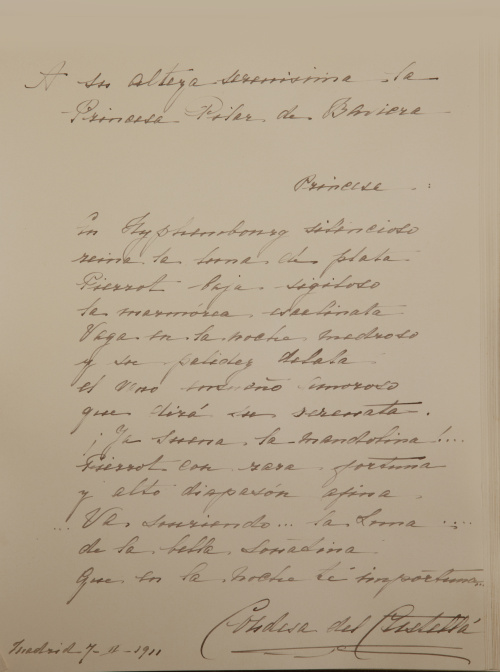 A su alteza serenisima la
Princesa Pilar de Baviera
Princesa :
En Nyphembourg silencioso
reina la luna de plata
Pierrot baja sigiloso
la marmórea escalinata
Vaga en la noche medroso
y su palidez delata
el vano ensueño amoroso
que dirá su serenata.
¡Ya suena la mandolina!...
Pierrot con rara fortuna
y alto diapasón afina.
... Va sonriendo... la Luna ....
de la bella soñadina
que en la noche le importuna..
Condesa del Castellá
Madrid 7-11-1911